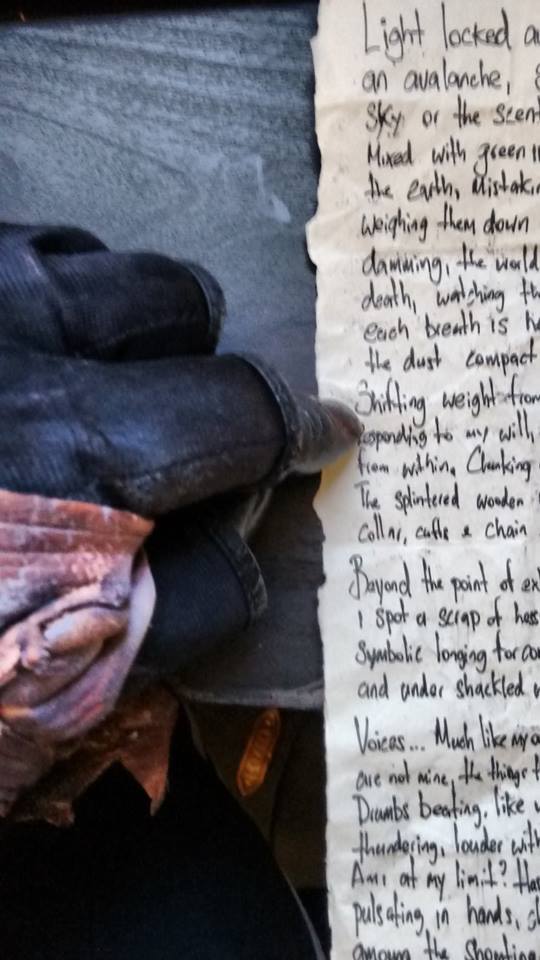 Light locked
an avalanche,
Sky or the scent
Mixed with green
the earth, Mistakin
weighing them down
damming, the world
death, watching th
each breath is he
the dust compact
Shifting weight from
responding to my will,
from within, Clunking
The splintered wooden
Collar, cuffs & Chain
Beyond the point of ex
I spot a scrap of hess
Symbolic longing for
and under shackled
Voices... Much like my
are not mine, the things t
Drumbs beating, like
thundering, louder with
Am i at my limit? Ha
pulsating in hands,
among the shouting